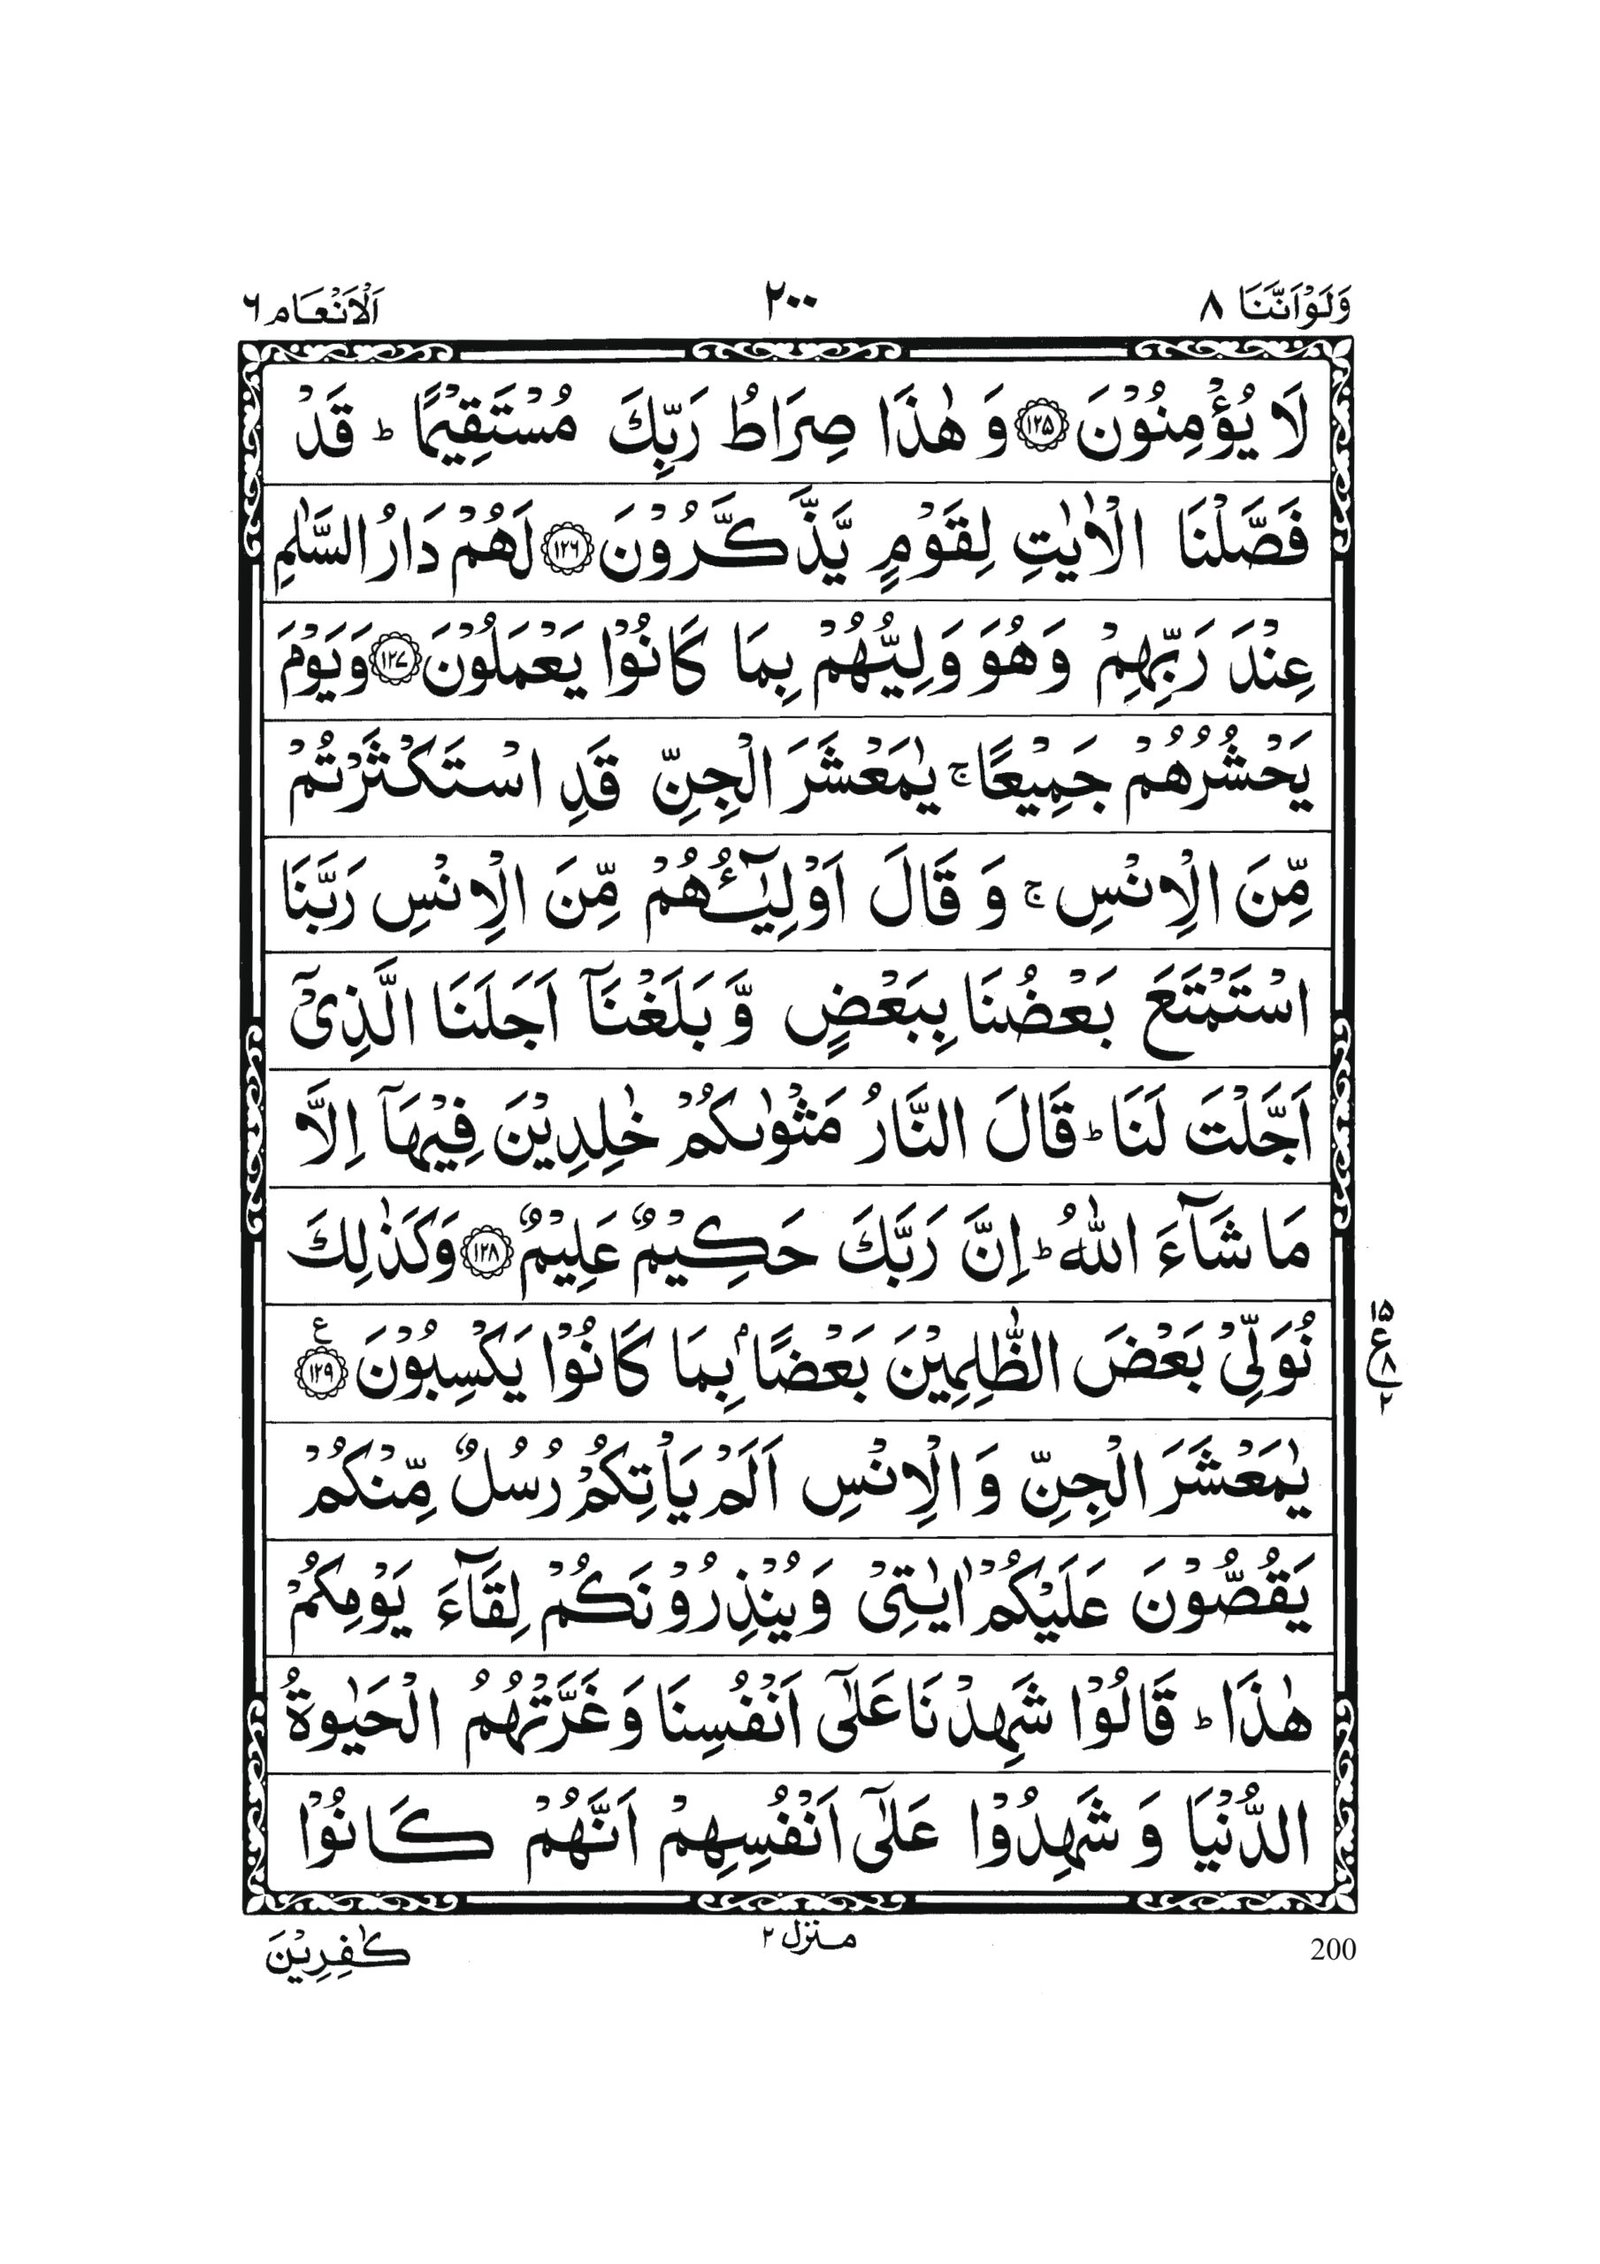 وَلَوْاَنَّنَا ٨ ٢٠٠ اَلْاَنْعَام ٦
لَا يُؤْمِنُوْنَ ﴿١٢٥﴾ وَ هٰذَا صِرَاطُ رَبِّكَ مُسْتَقِيْمًا ؕ قَدْ
فَصَّلْنَا الْاٰيٰتِ لِقَوْمٍ يَّذَّكَّرُوْنَ ﴿١٢٦﴾ لَهُمْ دَارُ السَّلٰمِ
عِنْدَ رَبِّهِمْ وَهُوَ وَلِيُّهُمْ بِمَا كَانُوْا يَعْمَلُوْنَ ﴿١٢٧﴾ وَيَوْمَ
يَحْشُرُهُمْ جَمِيْعًا ۚ يٰمَعْشَرَ الْجِنِّ قَدِ اسْتَكْثَرْتُمْ
مِّنَ الْاِنْسِ ۚ وَ قَالَ اَوْلِيٰٓـُٔهُمْ مِّنَ الْاِنْسِ رَبَّنَا
اسْتَمْتَعَ بَعْضُنَا بِبَعْضٍ وَّ بَلَغْنَاۤ اَجَلَنَا الَّذِيْۤ
اَجَّلْتَ لَنَا ؕ قَالَ النَّارُ مَثْوٰىكُمْ خٰلِدِيْنَ فِيْهَاۤ اِلَّا
مَا شَآءَ اللّٰهُ ؕ اِنَّ رَبَّكَ حَكِيْمٌ عَلِيْمٌ ﴿١٢٨﴾ وَكَذٰلِكَ
نُوَلِّيْ بَعْضَ الظّٰلِمِيْنَ بَعْضًاۢ بِمَا كَانُوْا يَكْسِبُوْنَ ﴿١٢٩﴾ ع
١٥ ع ٨ ٢
يٰمَعْشَرَ الْجِنِّ وَ الْاِنْسِ اَلَمْ يَاْتِكُمْ رُسُلٌ مِّنْكُمْ
يَقُصُّوْنَ عَلَيْكُمْ اٰيٰتِيْ وَيُنْذِرُوْنَكُمْ لِقَآءَ يَوْمِكُمْ
هٰذَا ؕ قَالُوْا شَهِدْنَا عَلٰۤى اَنْفُسِنَا وَ غَرَّتْهُمُ الْحَيٰوةُ
الدُّنْيَا وَ شَهِدُوْا عَلٰۤى اَنْفُسِهِمْ اَنَّهُمْ كَانُوْا
200 منزل ٢ كٰفِرِيْنَ